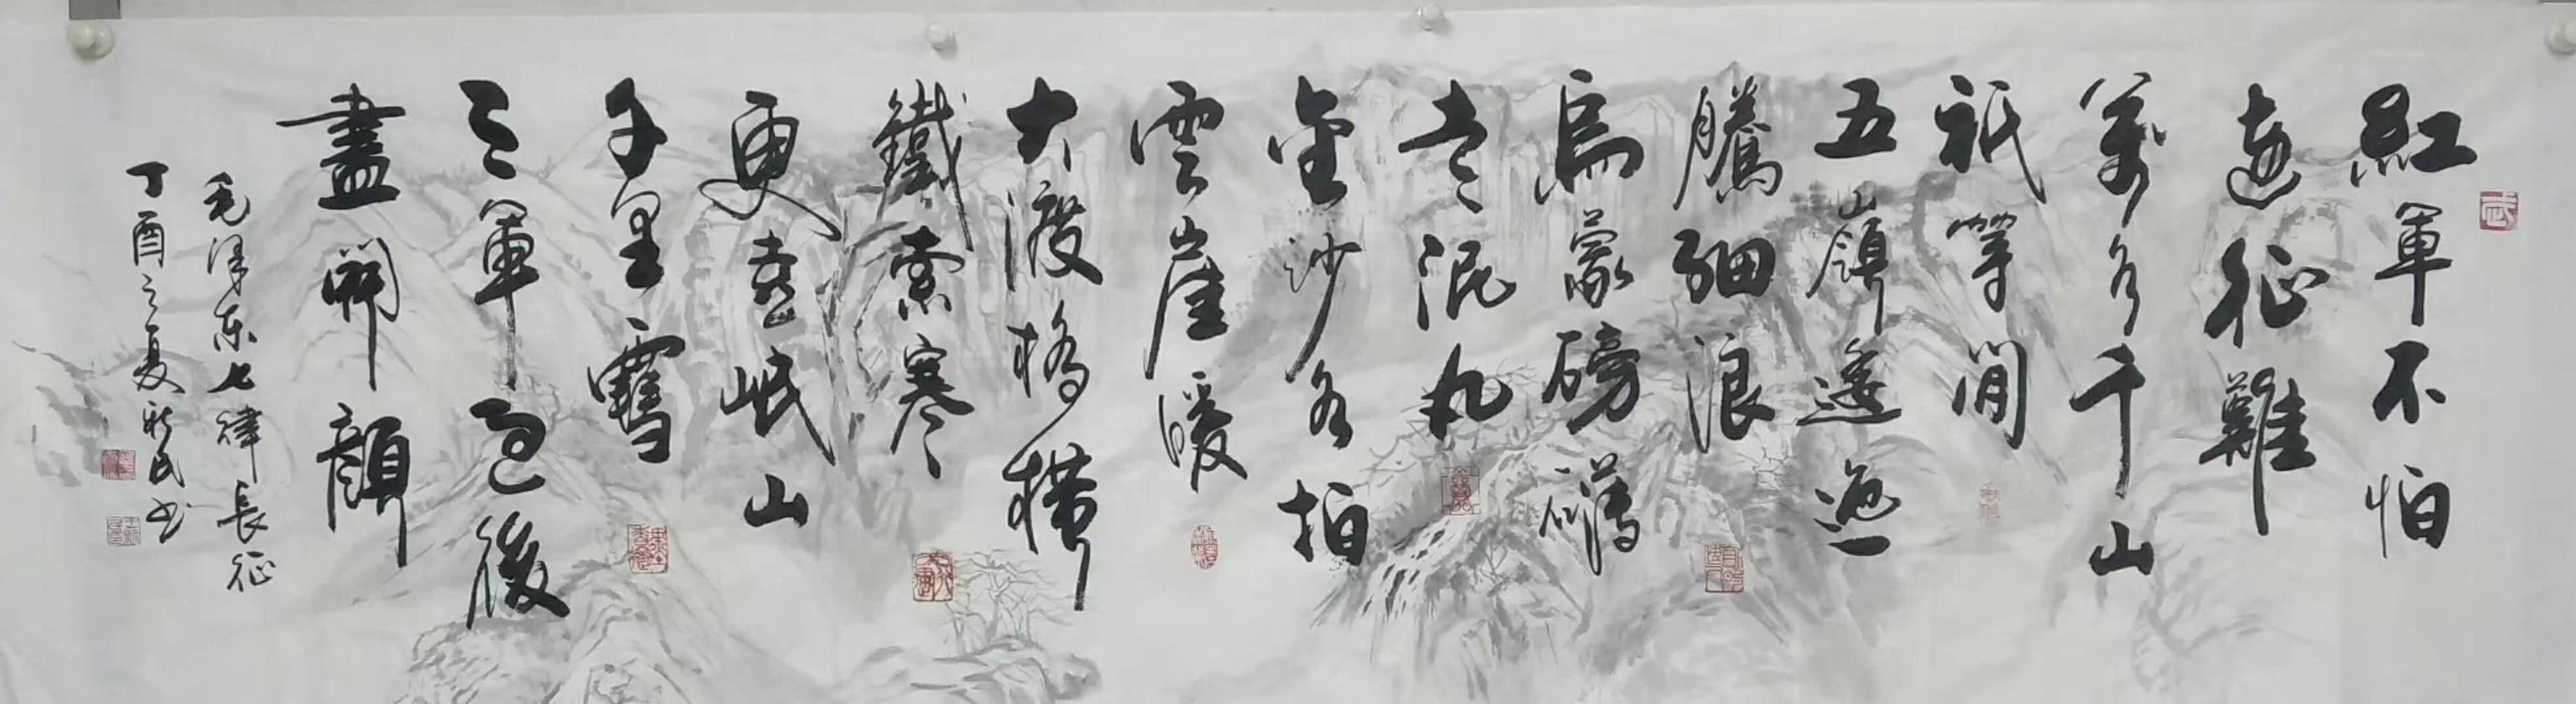 紅軍不怕
遠征難
萬水千山
祇等閒
五嶺逶迤
騰細浪
烏蒙磅礴
走泥丸
金沙水拍
雲崖暖
大渡橋橫
鐵索寒
更喜岷山
千里雪
三軍過後
盡開顏
毛澤东七律長征
丁酉之夏新民书